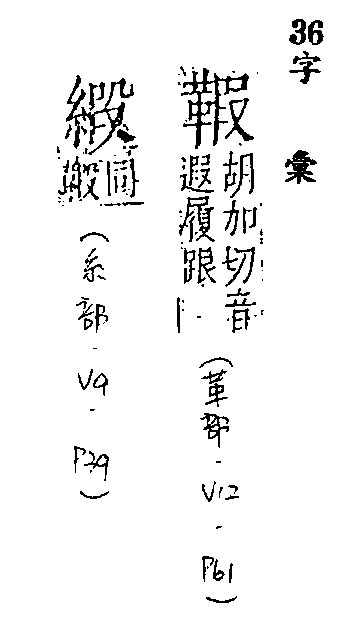 36
字彙
胡加切音
遐履跟
(革部-V12-P61)
同
(糸部-V9-P39)